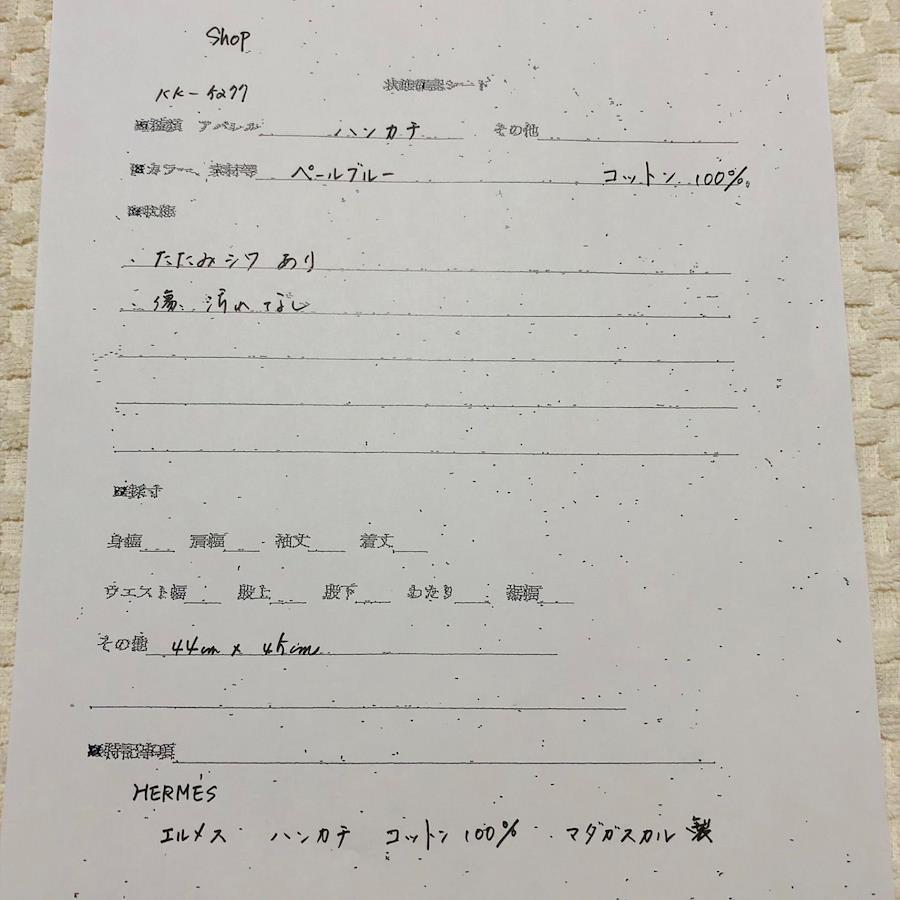 Shop
KK-5277 状態確認シート
■種類 アパレル ハンカチ その他
■カラー、素材等 ペールブルー コットン 100%
■状態
・たたみシワ あり
・傷、汚れ なし
■採寸
身幅 肩幅 袖丈 着丈
ウエスト幅 股上 股下 わたり 裾幅
その他 44cm x 45cm
■特記事項
HERMÈS
エルメス ハンカチ コットン 100% マダガスカル 製